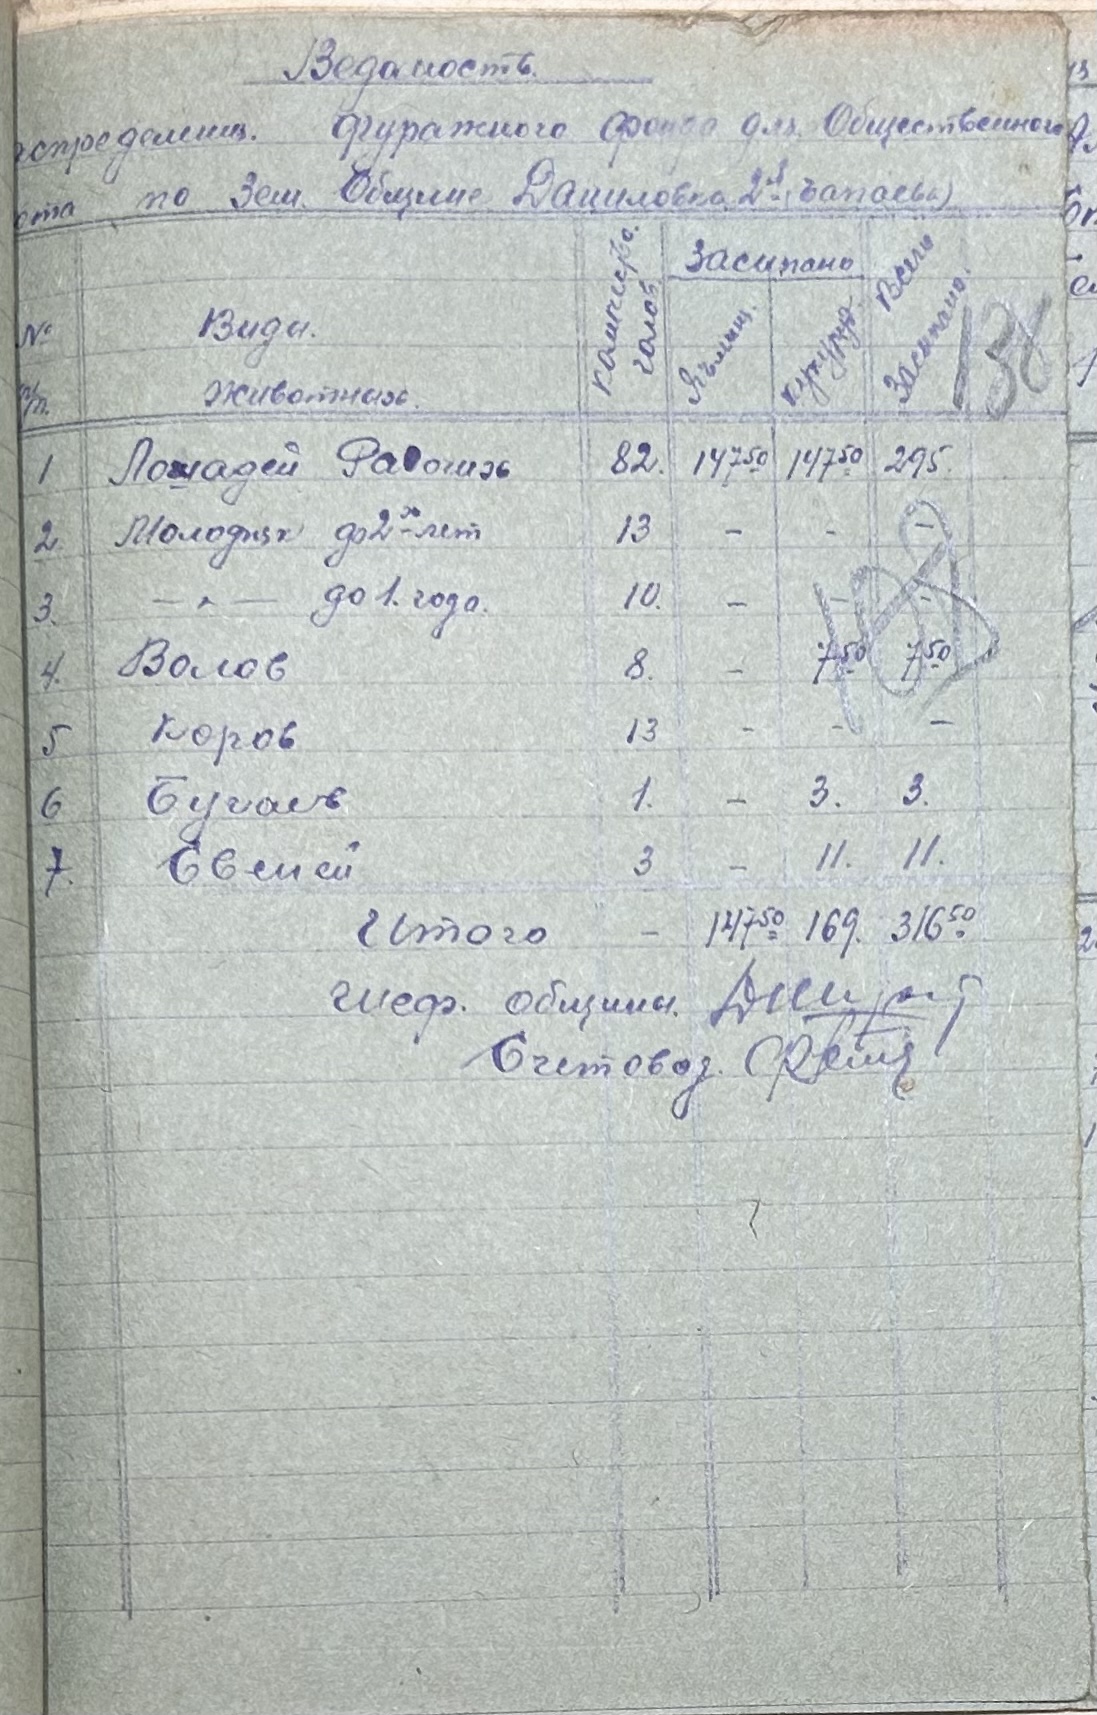 Ведомость.
аспределения. фуражного фонда для. Общественного
ота по Зем. Общине Даниловка 2я (Чапаева)
№ п/п. Виды. животных. количество. голов. Засыпано Ячмень. кукуруз. Всего Засыпано. 138
1 Лошадей Рабочих 82. 147 50 147 50 295.
2. Молодняк до 2х лет 13 - - -
3. — " — до 1. года. 10. - - -
4. Волов 8. - 7 50 7 50
5 Коров 13 - - -
6 Бугаев 1. - 3. 3.
7. Свиней 3 - 11. 11.
Итого - 147 50 169. 316 50
Шеф. общины.
Счетовод.